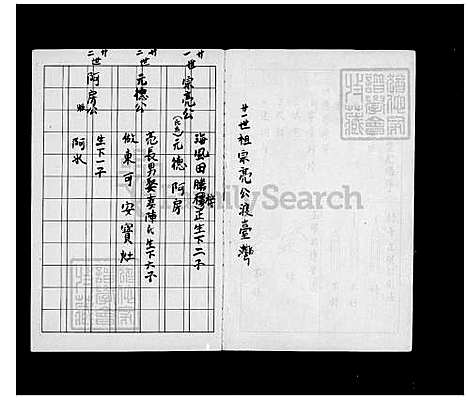 廿一世祖宗亮公渡臺灣
廿一世 宗亮公
海風田勝 正生下二子
(民系) 元德 阿房
廿二世 元德公
亮長男娶妻陣氏生下六子
做 東 可 安 寶 灶
廿二世 阿房公
生下一子
阿水
FamilySearch